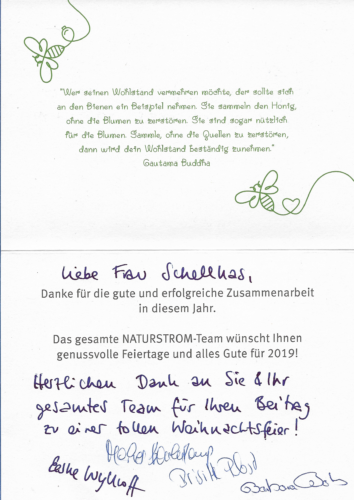 "Wer seinen Wohlstand vermehren möchte, der sollte sich
an den Bienen ein Beispiel nehmen. Sie sammeln den Honig,
ohne die Blumen zu zerstören. Sie sind sogar nützlich
für die Blumen. Sammle, ohne die Quellen zu zerstören,
dann wird dein Wohlstand beständig zunehmen."
Gautama Buddha
Liebe Frau Schellhas,
Danke für die gute und erfolgreiche Zusammenarbeit
in diesem Jahr.
Das gesamte NATURSTROM-Team wünscht Ihnen
genussvolle Feiertage und alles Gute für 2019!
Herzlichen Dank an Sie & Ihr
gesamtes Team für Ihren Beitrag
zu einer tollen Weihnachtsfeier!
Barbara